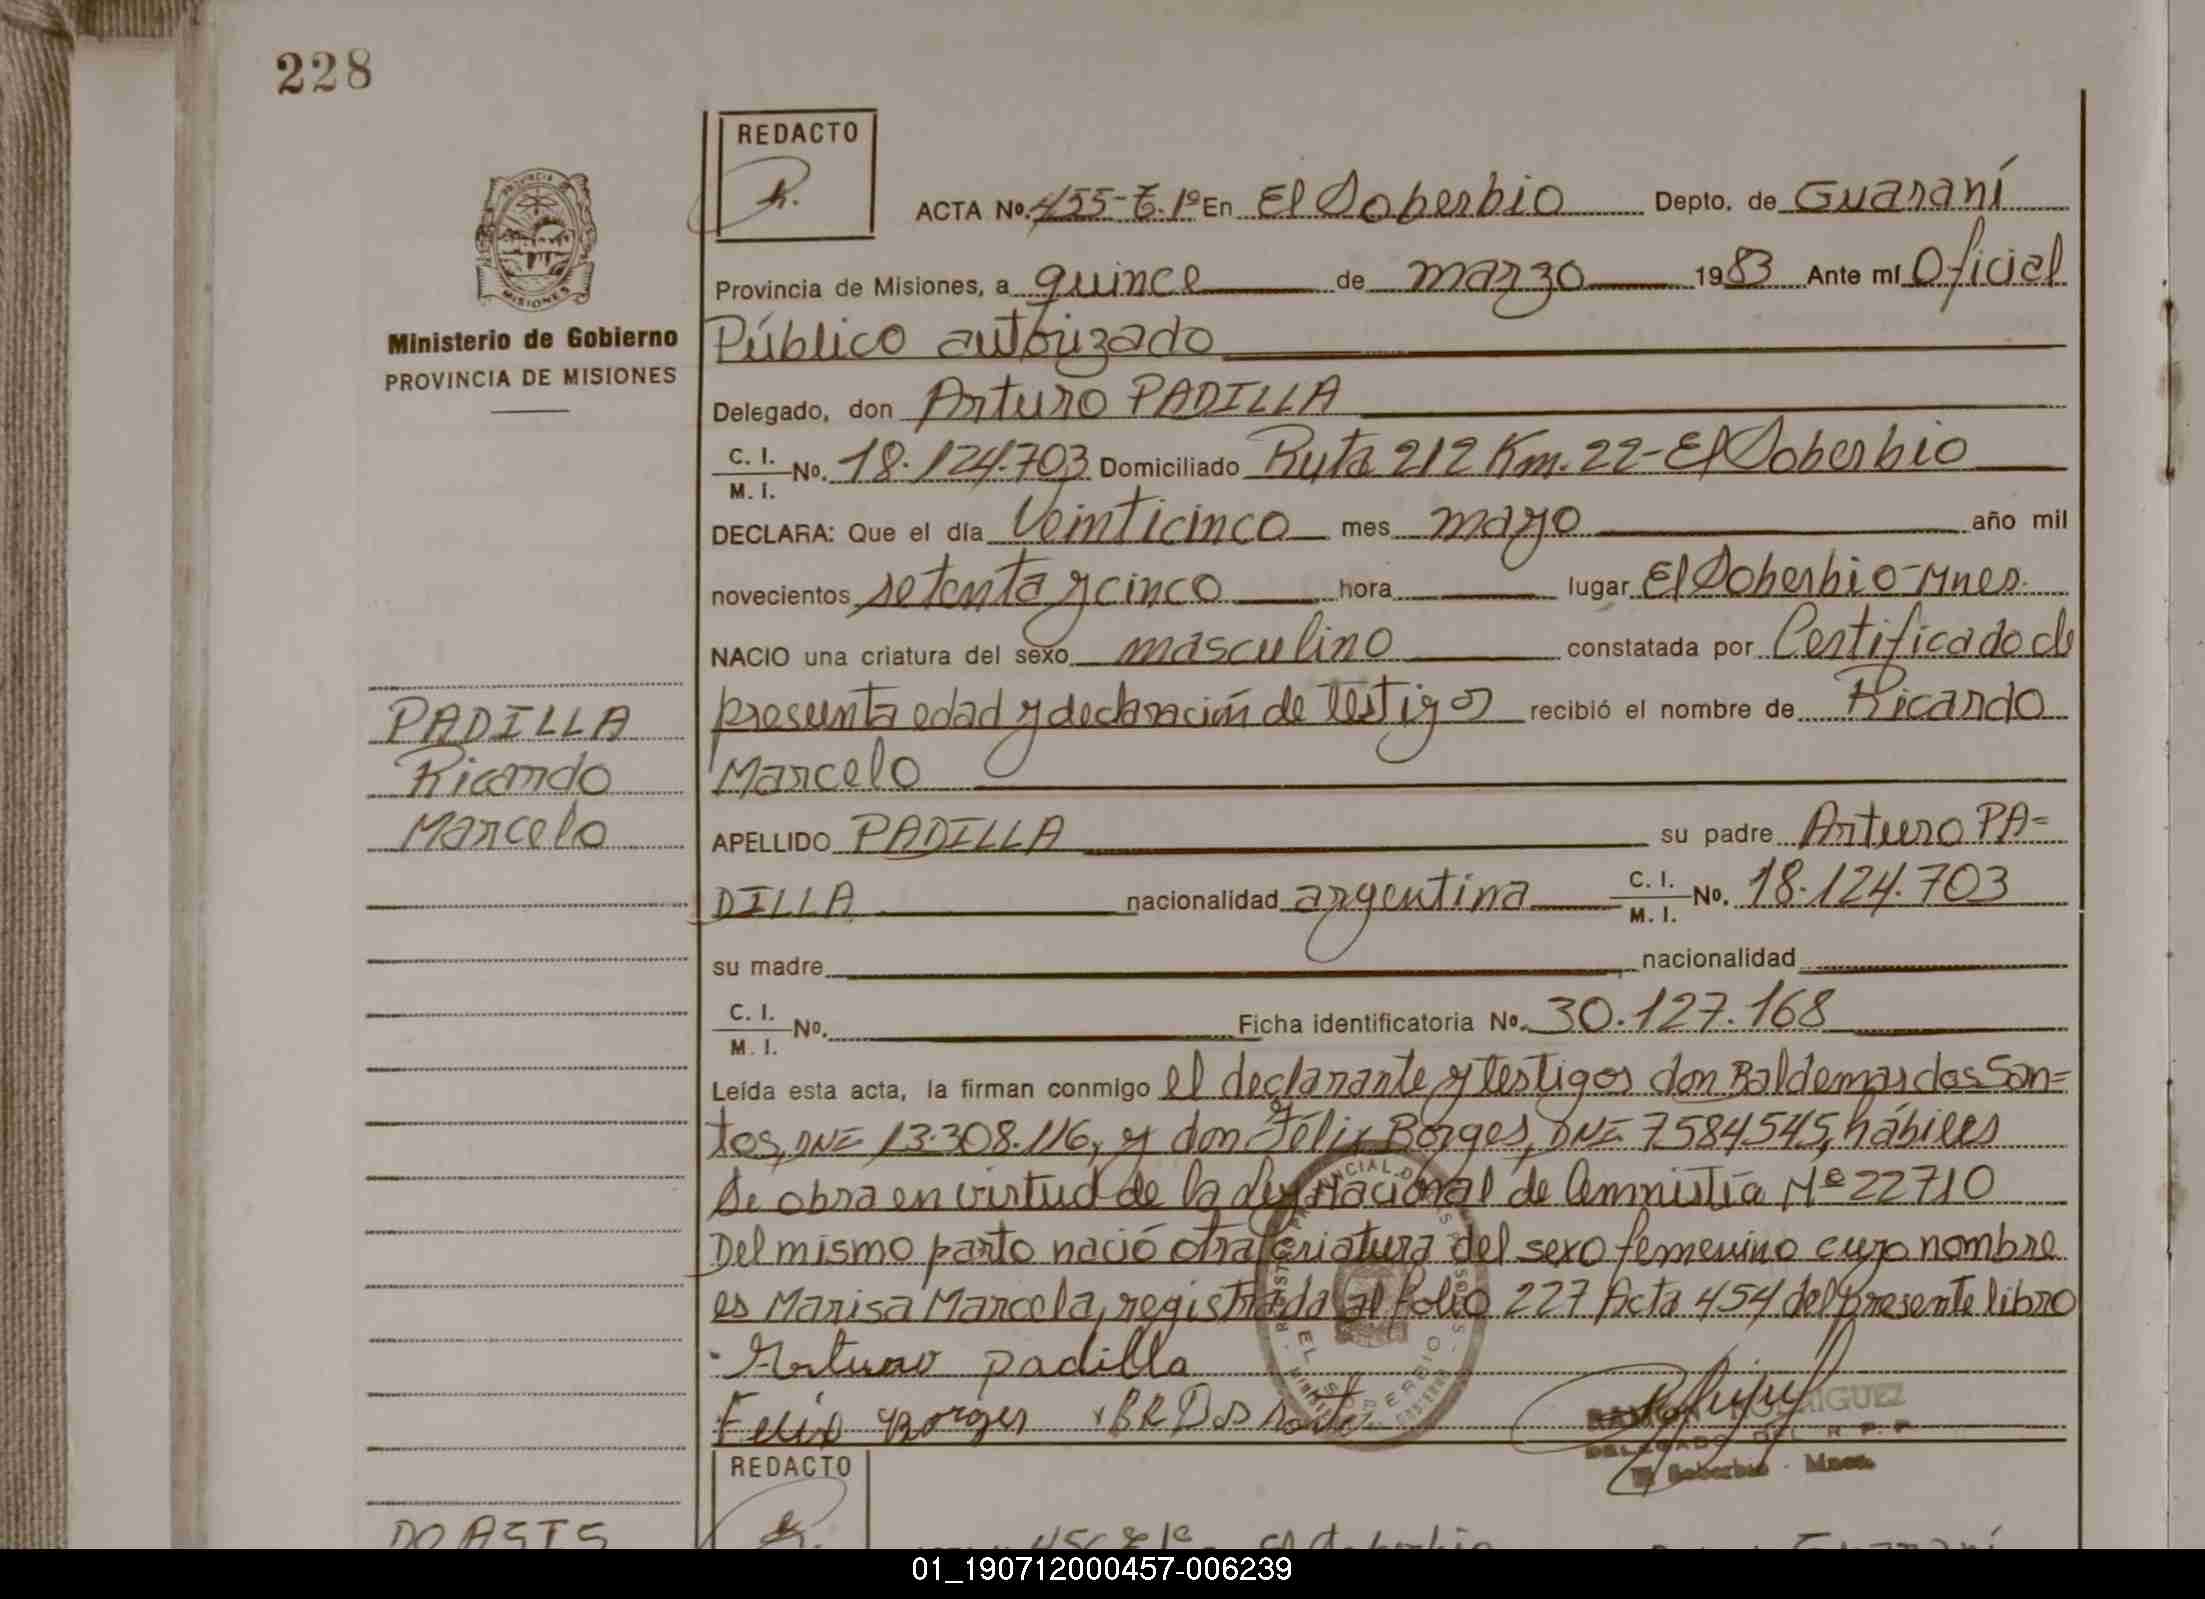 228
REDACTO
ACTA Nº. 455-T. 1º En El Soberbio Depto. de Guaraní
Provincia de Misiones, a quince de marzo 1983 Ante mí Oficial
Ministerio de Gobierno
PROVINCIA DE MISIONES
Público autorizado
Delegado, don Arturo PADILLA
C. I.
M. I. Nº. 18.124.703 Domiciliado Ruta 212 Km. 22-El Soberbio
DECLARA: Que el día Veinticinco mes mayo año mil
novecientos setenta y cinco hora lugar El Soberbio-Mnes.
NACIO una criatura del sexo masculino constatada por Certificado de
presunta edad y declaración de testigos recibió el nombre de Ricardo
Marcelo
PADILLA
Ricardo
Marcelo
APELLIDO PADILLA su padre Arturo PA=
DILLA nacionalidad argentina C. I.
M. I. Nº. 18.124.703
su madre nacionalidad
C. I.
M. I. Nº. Ficha identificatoria Nº. 30.127.168
Leída esta acta, la firman conmigo el declarante y testigos don Baldemar dos San=
tos, DNI 13.308.116, y don Félix Borges, DNI. 7584545, hábiles
Se obra en virtud de la ley Nacional de Amnistía Nº 22710
Del mismo parto nació otra criatura del sexo femenino cuyo nombre
es Marisa Marcela, registrada al folio 227 Acta 454 del presente libro
Arturo padilla
Felix Borges
RAMON RODRIGUEZ
DELEGADO DEL R. P. P.
El Soberbio - Mnes.
REDACTO
01_190712000457-006239